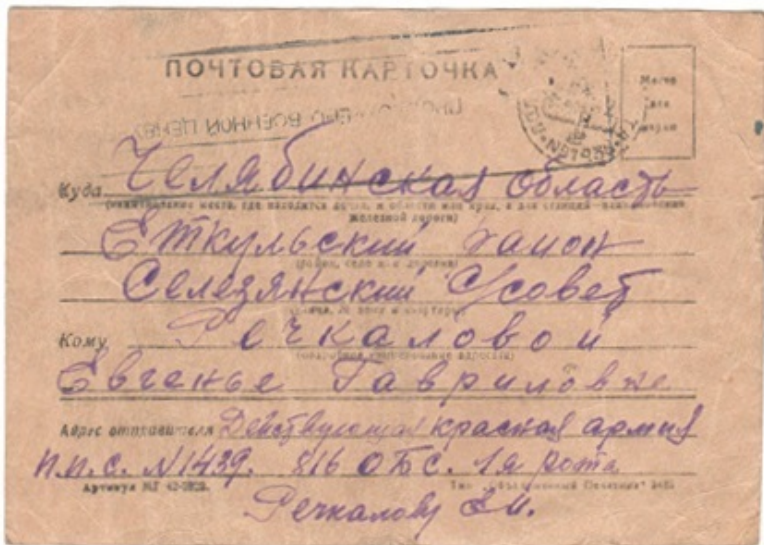 ПОЧТОВАЯ КАРТОЧКА
ВОЕННОЙ ЦЕНЗ
Место
для
марки
Куда Челябинская область
(наименование места, где находится почта, и области или края, а для станций наименование
железной дороги)
Еткульский район
(район, село или деревня)
Селезянский С/совет
Кому Речкаловой
(подробное наименование адресата)
Евгенье Гавриловне
Адрес отправителя Действующая красная армия
п.п.с. №1439. 816 ОБС. 1я рота
Речкалову